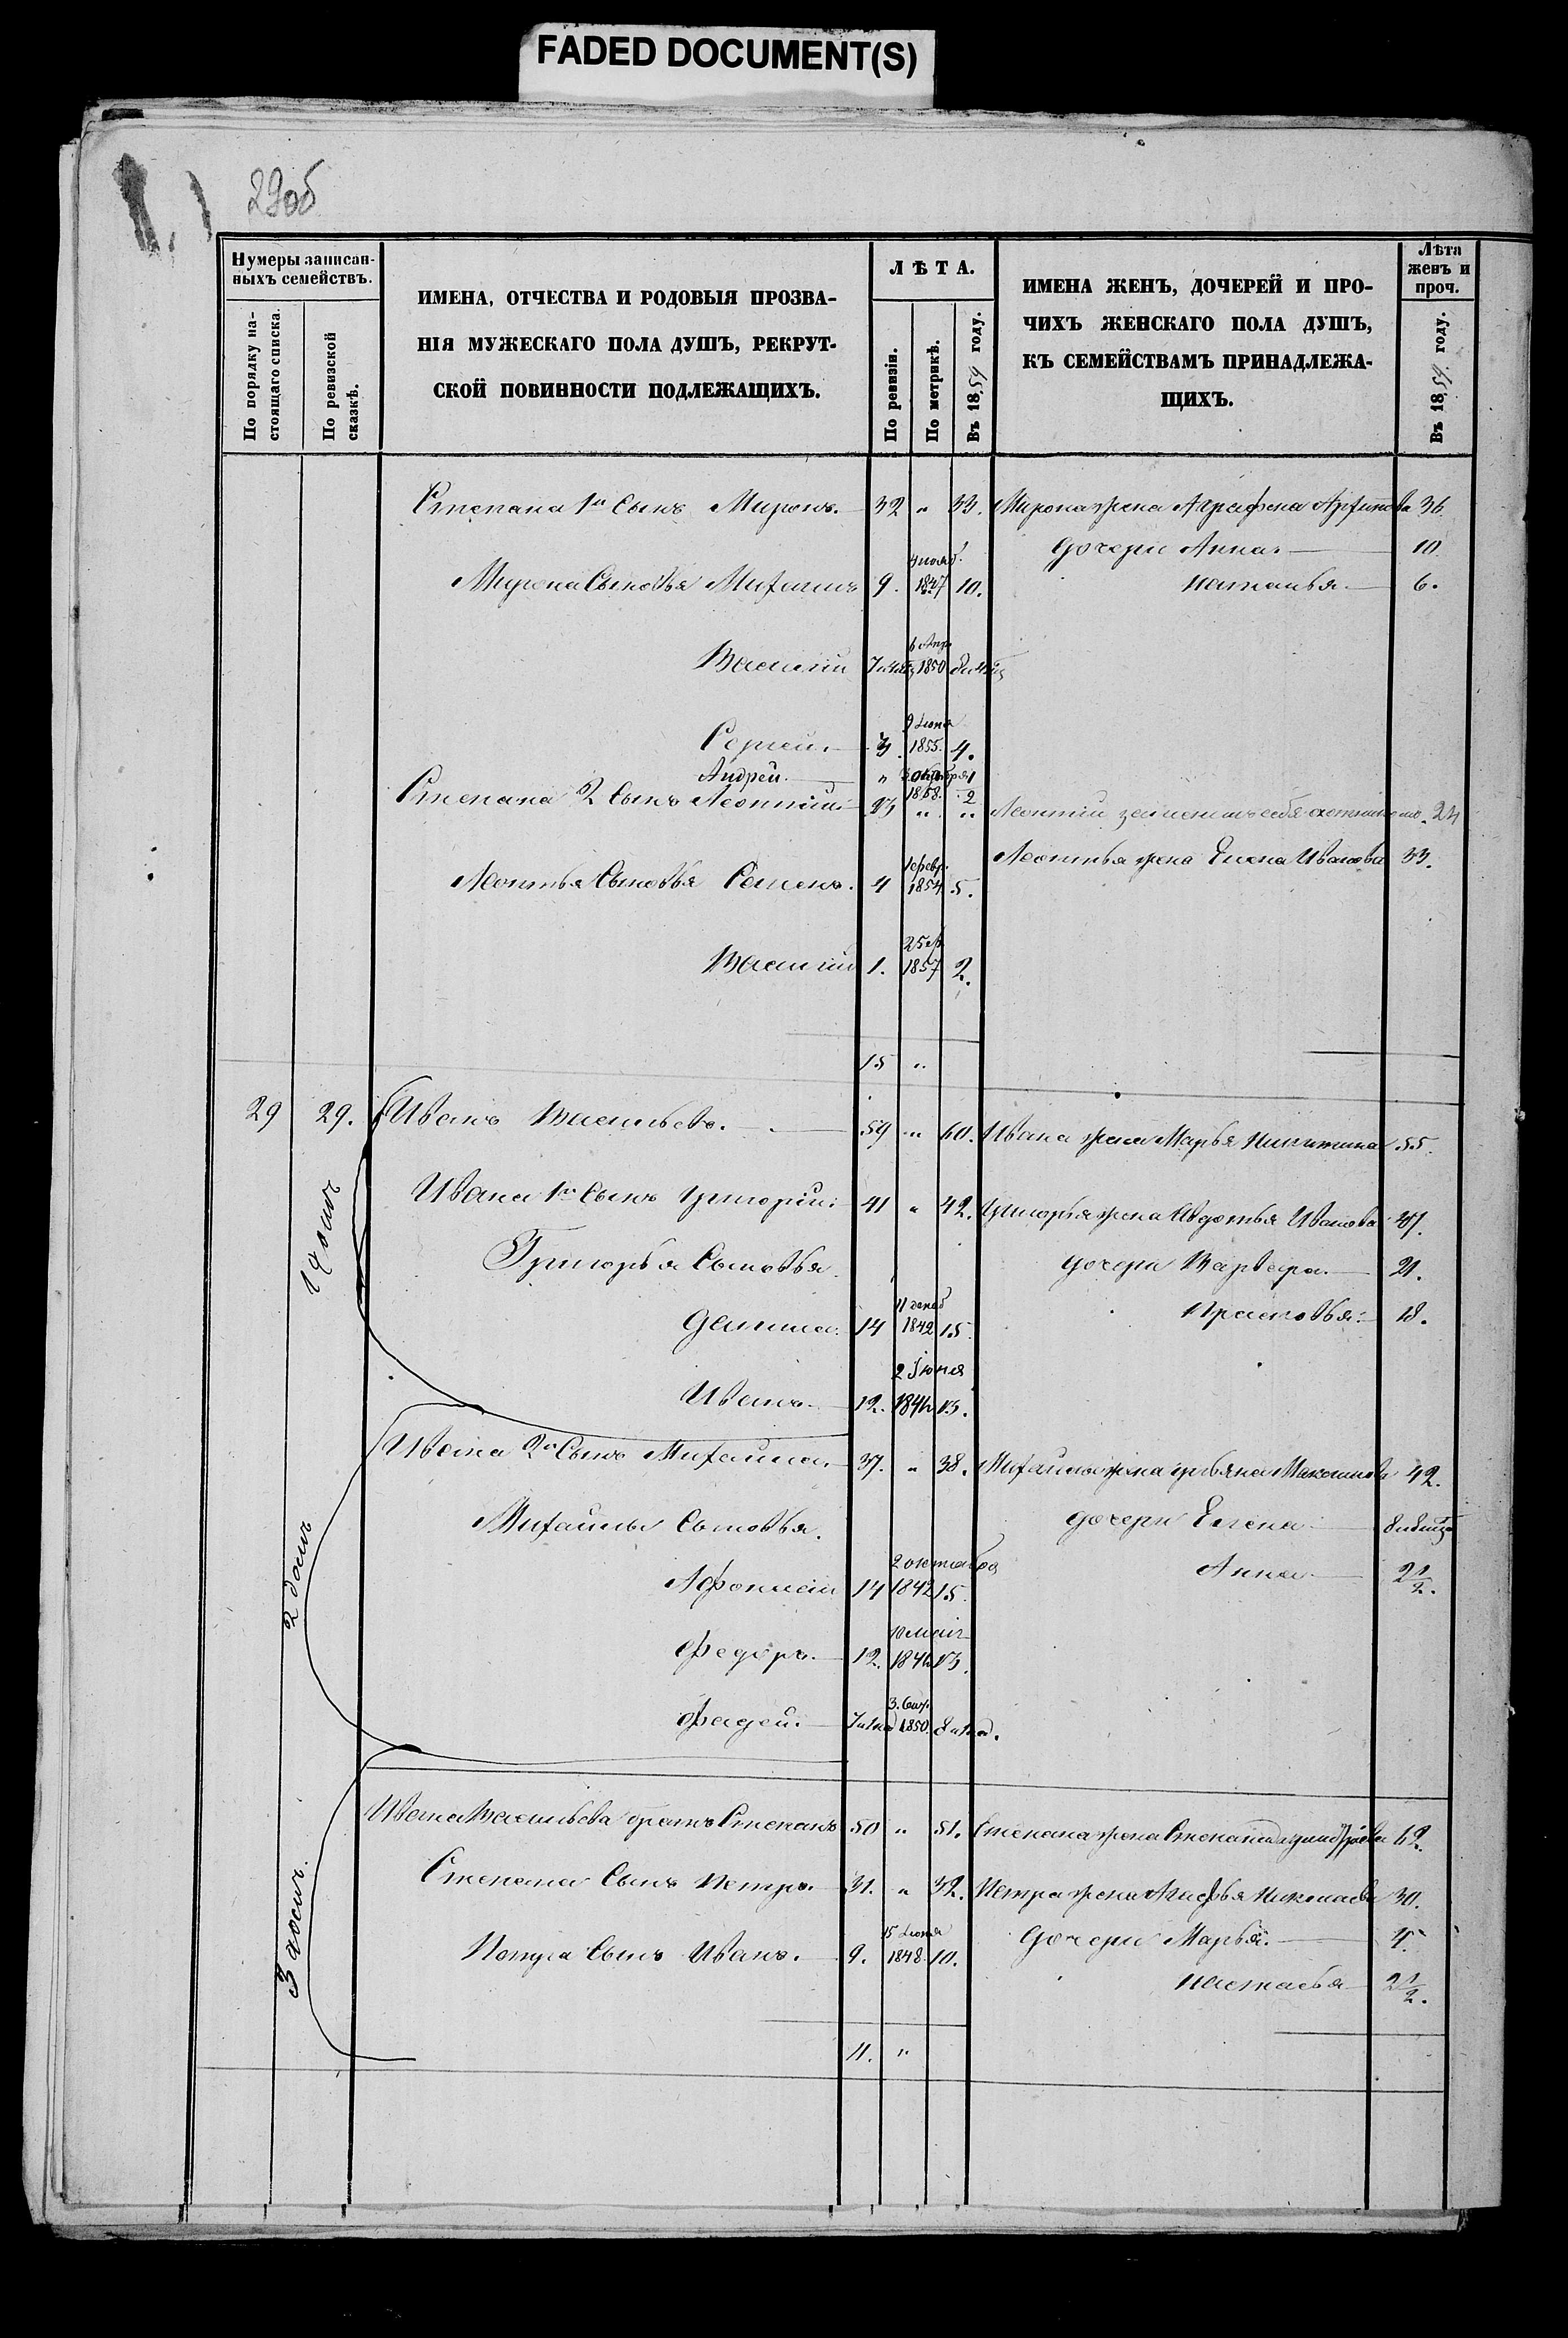 FADED DOCUMENT(S)
29об
Нумеры записан-
ныхъ семействъ.
По порядку на-
стоящаго списка.
По ревизской
сказкѣ.
ИМЕНА, ОТЧЕСТВА И РОДОВЫЯ ПРОЗВА-
НІЯ МУЖЕСКАГО ПОЛА ДУШЪ, РЕКРУТ-
СКОЙ ПОВИННОСТИ ПОДЛЕЖАЩИХЪ.
ЛѢТА.
По ревизіи.
По метрикѣ.
Въ 1859 году.
ИМЕНА ЖЕНЪ, ДОЧЕРЕЙ И ПРО-
ЧИХЪ ЖЕНСКАГО ПОЛА ДУШЪ,
КЪ СЕМЕЙСТВАМЪ ПРИНАДЛЕЖА-
ЩИХЪ.
Лѣта
женъ и
проч.
Въ 1859 году.
Степана 1й Сынъ Миронъ. 32 " 33. Мирона жена Аграфена 36
дочери Анна 10
Мирона Сыновья Михаилъ 9. 4 нояб. 1847 10. Наталья 6.
Василій 6 Апр 1850
Сергей. 3 9 Июня 1855. 4.
Андрей. " Октября 1858. 1/2
Степана 2 Сынъ Леонтій 23 " " Леонтій себя охотникомъ. 24
Леонтья жена Елена Иванова 33.
Леонтья Сыновья Семенъ. 4 1 февр. 1854 5.
Василій 1. 1857 2.
15 "
29 29. Иванъ Васильевъ. 59 " 60. Ивана жена Марья Никитина 55.
1й
Ивана 1й Сынъ Григорій 41 " 42. Григорья жена Авдотья Иванова 37.
Григорья Сыновья дочери Варвара 21.
Данила 14 11 декаб 1842 15 Прасковья 18.
Иванъ. 12. 2 Іюня 1844 13.
Ивана 2й Сынъ Михайла. 37. " 38. Михайлы жена Ульяна Максимова 42.
2
Михайлы Сыновья. дочери Елена
Афонасій 14 2 октября 1842 15 Анна 2 1/2.
Федоръ. 12. 10 мая 1844 13.
Фадей. 1850.
Ивана Васильева братъ Степанъ 50 " 51. Степана жена Степанида 62.
3
Степана Сынъ Петръ. 31. " 32. Петра жена Агафья Николаева 30.
Петра Сынъ Иванъ. 9. 15 Июня 1848. 10. дочери Марья.
Настасья 2 1/2.
11. "